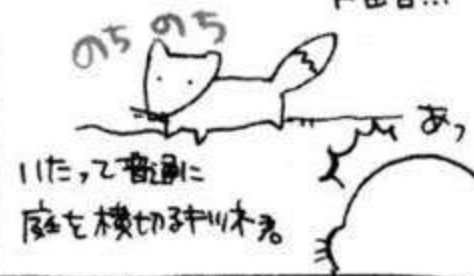 のち のち
あっ
いたって普通に
庭を横切るキツネ君。